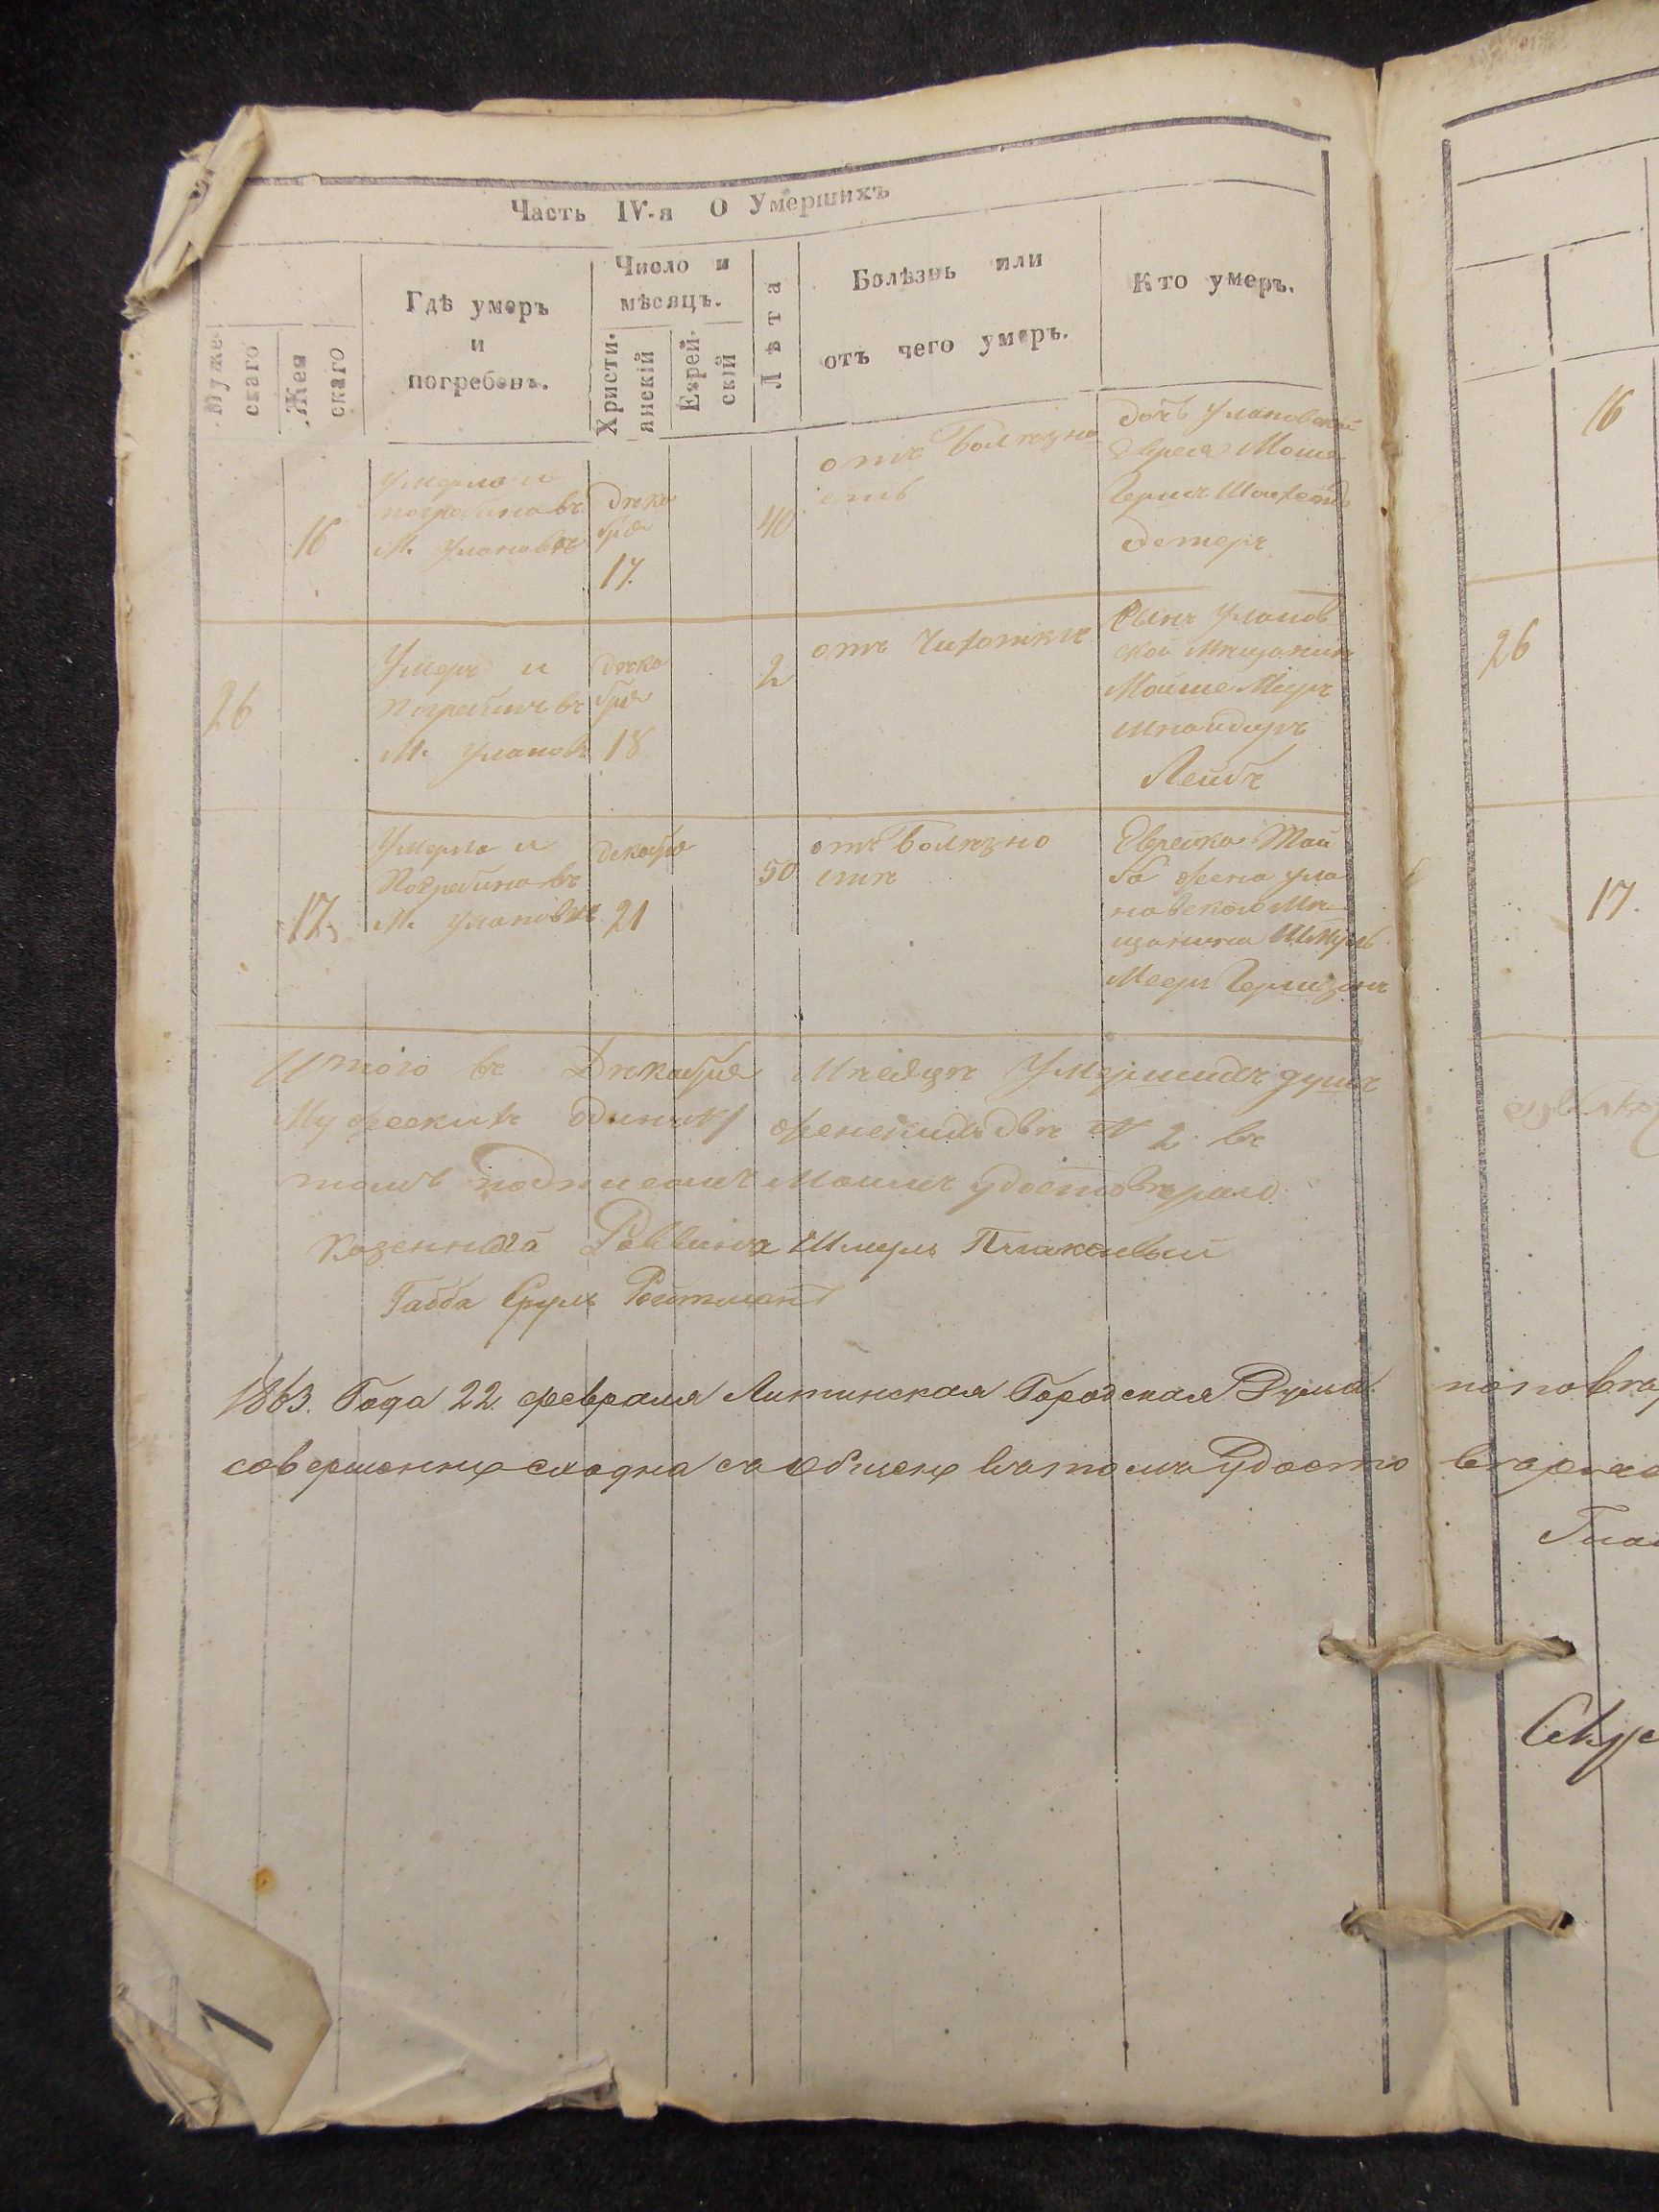 Часть IV-я О Умершихъ
Муже-
скаго
Жен
скаго
Гдѣ умеръ
и
погребенъ.
Число и
мѣсяцъ.
Христи-
анскій
Еврей-
скій
Лѣта
Болѣзнь или
отъ чего умеръ.
Кто умеръ.
16
Умерла и
погребина въ
М. Улановѣ
Дѣка
бря
17.
40
отъ Болѣзно
сть
дочь Улановской
Еврея Моше
Герш
16
26
Умеръ и
Погребинъ въ
М. Улановѣ
Дѣка
бря
18
2
отъ Чихотки
Сынъ Уланов
ской Мѣщанин
Мойше Меиръ
Шнайдеръ
Лейбъ
26
17
Умерла и
Погребина въ
М. Улановѣ
Декабря
21
50
отъ Болѣзно
сти
Еврейка Тай
ба жена Ула
новского Мѣ
щанина Шмуль
Меер Гершзон
17.
Итого въ Дѣкабря Мѣсяцѣ Умершихъ душъ
Мужескихъ одинъ 1 женскихъ двѣ № 2 въ
томъ подписомъ Моимъ удостовѣраю
Козенный Раввинъ Шмуль
Габба Сруль Ройтманъ
1863. Года 22. февраля Литинская Городская Дума
совершенно сходна въ томъ Удосто
Секре